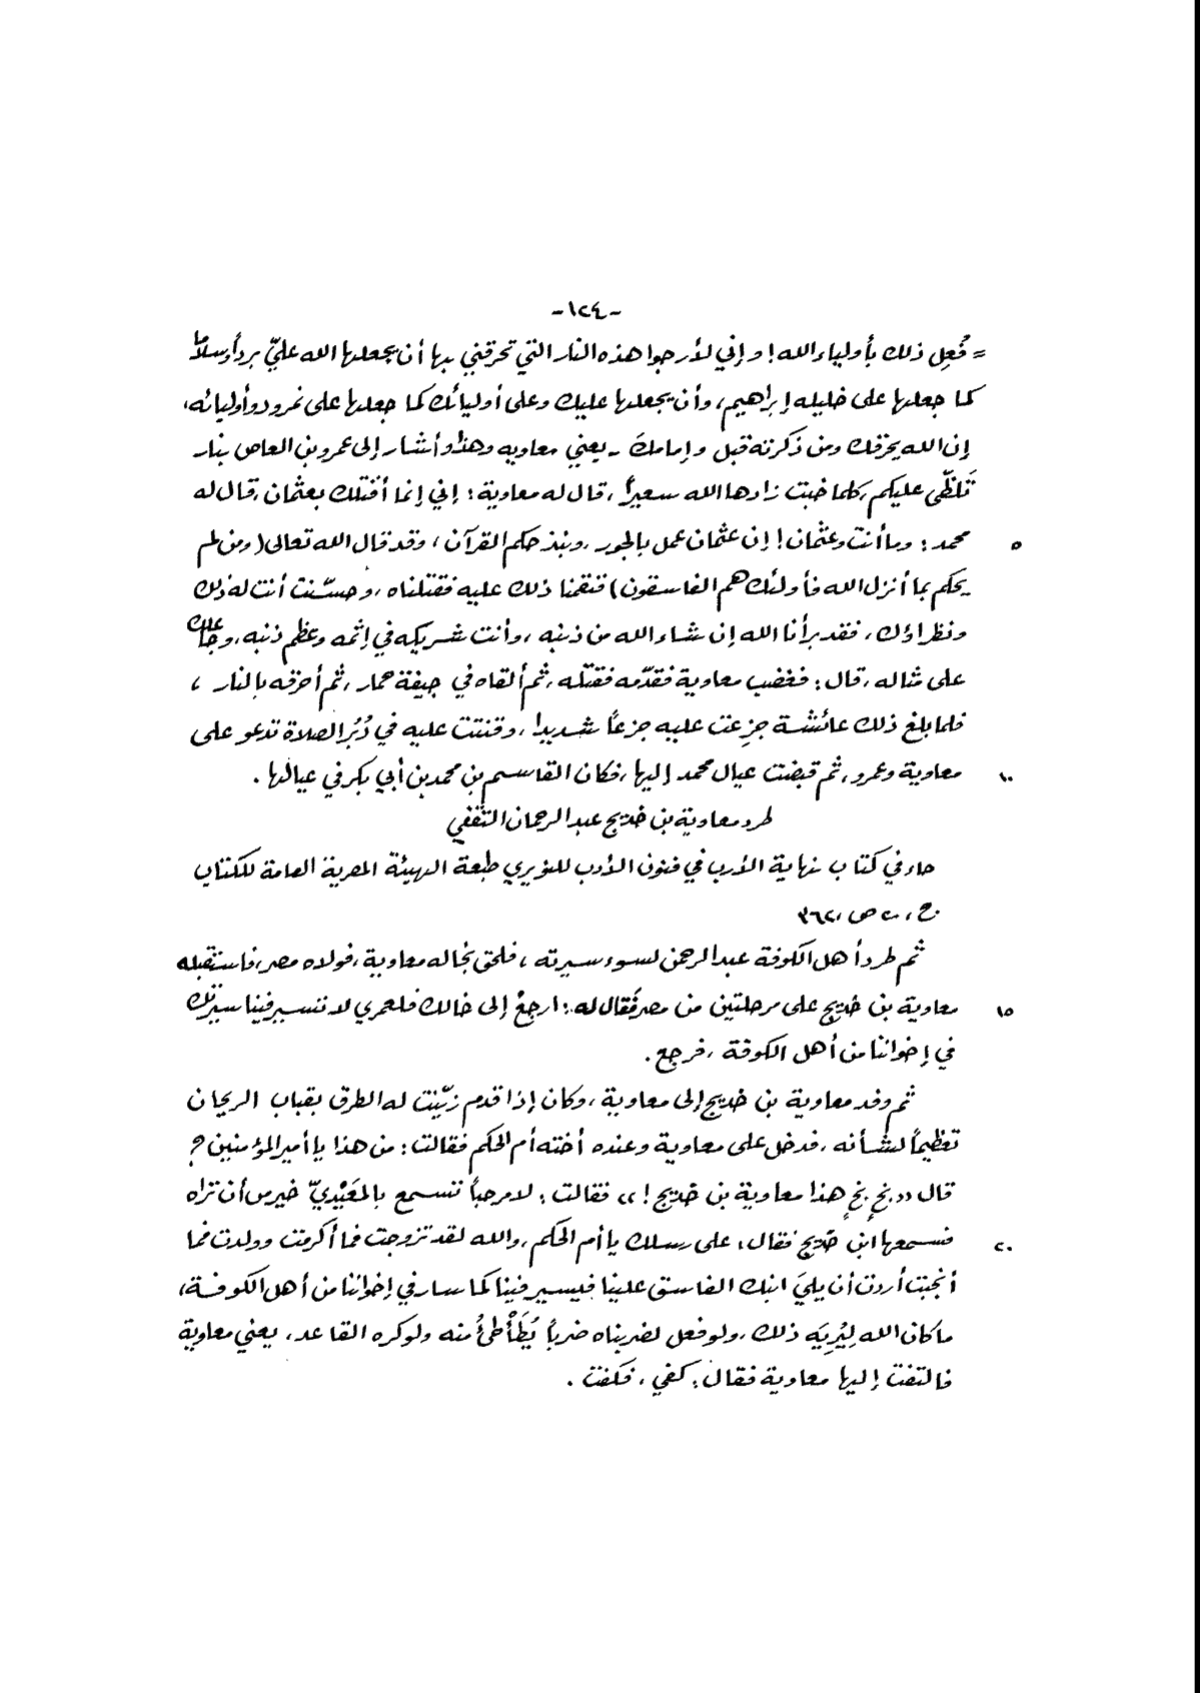 -١٢٤-
= فُعِل ذلك بأولياء الله! وإني لأرجوا هذه النار التي تحرقني بها أن يجعلها الله عليّ برداً وسلاماً
كما جعلها على خليله إبراهيم، وأن يجعلها عليك وعلى أوليائك كما جعلها على نمرود وأوليائه،
إن الله يحرقك ومن ذكرته قبل وإمامك - يعني معاوية وهذا وأشار إلى عمرو بن العاص بنار
تَلَظّى عليكم، كلما خبت زادها الله سعيراً، قال له معاوية: إني إنما أقتلك بعثمان، قال له
محمد: وما أنت وعثمان! إن عثمان عمل بالجور، ونبذ حكم القرآن، وقد قال الله تعالى (ومن لم ٥
يحكم بما أنزل الله فأولئك هم الفاسقون) فنقمنا ذلك عليه فقتلناه، وحسّنت أنت له ذلك
ونظراؤك، فقد برأنا الله إن شاء الله من ذنبه، وأنت شريكه في إثمه وعظم ذنبه، وجاعلك
على مثاله، قال: فغضب معاوية فقدّمه فقتله، ثم ألقاه في جيفة حمار، ثم أحرقه بالنار،
فلما بلغ ذلك عائشة جزِعت عليه جزعاً شديدا، وقنتت عليه في دُبُر الصلاة تدعو على
معاوية وعمرو، ثم قبضت عيال محمد إليها، فكان القاسم بن محمد بن أبي بكر في عيالها. ١٠
طرد معاوية بن خديج عبد الرحمان الثقفي
جاء في كتاب نهاية الأرب في فنون الأدب للنويري طبعة الهيئة المصرية العامة للكتاب
ج، ٢٠ ص، ٣٦٢
ثم طرد أهل الكوفة عبد الرحمن لسوء سيرته، فلحق بخاله معاوية، فولاه مصر، فاستقبله
معاوية بن خديج على مرحلتين من مصر فقال له: ارجعْ إلى خالك فلعمري لا تسير فينا سيرتك ١٥
في إخواننا من أهل الكوفة، فرجع.
ثم وفد معاوية بن خديج إلى معاوية، وكان إذا قدم زيّنت له الطرق بقباب الريحان
تعظيماً لشأنه، فدخل على معاوية وعنده أخته أم الحكم فقالت: من هذا يا أمير المؤمنين ؟
قال «بخٍ بخٍ هذا معاوية بن خديج!» فقالت: لا مرحباً تسمع بالمعَيْديّ خير من أن تراه
فسمعها ابن خديج فقال: على رسلك يا أم الحكم، والله لقد تزوجت فما أكرمت وولدت فما ٢٠
أنجبت أردت أن يليَ ابنك الفاسق علينا فيسير فينا كما سار في إخواننا من أهل الكوفة،
ما كان الله لِيُرِيَه ذلك، ولو فعل لضربناه ضرباً يُطَأْطئُ منه ولو كره القاعد، يعني معاوية
فالتفت إليها معاوية فقال: كفي، فكفت.